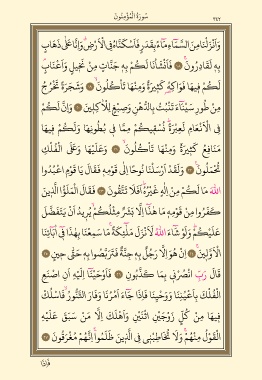 سُورَةُ الْمُؤْمِنُونَ
٣٤٢
وَاَنْزَلْنَا مِنَ السَّمَٓاءِ مَٓاءً بِقَدَرٍ فَاَسْكَنَّاهُ فِي الْاَرْضِ وَاِنَّا عَلٰى ذَهَابٍ
بِهٖ لَقَادِرُونَ ۝ فَاَنْشَأْنَا لَكُمْ بِهٖ جَنَّاتٍ مِنْ نَخٖيلٍ وَاَعْنَابٍ
لَكُمْ فٖيهَا فَوَاكِهُ كَثٖيرَةٌ وَمِنْهَا تَأْكُلُونَ ۝ وَشَجَرَةً تَخْرُجُ
مِنْ طُورِ سَيْنَٓاءَ تَنْبُتُ بِالدُّهْنِ وَصِبْغٍ لِلْاٰكِلٖينَ ۝ وَاِنَّ لَكُمْ
فِي الْاَنْعَامِ لَعِبْرَةً نُسْقٖيكُمْ مِمَّا فٖي بُطُونِهَا وَلَكُمْ فٖيهَا
مَنَافِعُ كَثٖيرَةٌ وَمِنْهَا تَأْكُلُونَ ۝ وَعَلَيْهَا وَعَلَى الْفُلْكِ
تُحْمَلُونَ ۝ وَلَقَدْ اَرْسَلْنَا نُوحًا اِلٰى قَوْمِهٖ فَقَالَ يَا قَوْمِ اعْبُدُوا
اللّٰهَ مَا لَكُمْ مِنْ اِلٰهٍ غَيْرُهُ اَفَلَا تَتَّقُونَ ۝ فَقَالَ الْمَلَؤُا الَّذٖينَ
كَفَرُوا مِنْ قَوْمِهٖ مَا هٰذَٓا اِلَّا بَشَرٌ مِثْلُكُمْ يُرٖيدُ اَنْ يَتَفَضَّلَ
عَلَيْكُمْ وَلَوْ شَٓاءَ اللّٰهُ لَاَنْزَلَ مَلٰٓئِكَةً مَا سَمِعْنَا بِهٰذَا فٖٓي اٰبَٓائِنَا
الْاَوَّلٖينَ ۝ اِنْ هُوَ اِلَّا رَجُلٌ بِهٖ جِنَّةٌ فَتَرَبَّصُوا بِهٖ حَتّٰى حٖينٍ ۝
قَالَ رَبِّ انْصُرْنٖي بِمَا كَذَّبُونِ ۝ فَاَوْحَيْنَٓا اِلَيْهِ اَنِ اصْنَعِ
الْفُلْكَ بِاَعْيُنِنَا وَوَحْيِنَا فَاِذَا جَٓاءَ اَمْرُنَا وَفَارَ التَّنُّورُ فَاسْلُكْ
فٖيهَا مِنْ كُلٍّ زَوْجَيْنِ اثْنَيْنِ وَاَهْلَكَ اِلَّا مَنْ سَبَقَ عَلَيْهِ
الْقَوْلُ مِنْهُمْ وَلَا تُخَاطِبْنٖي فِي الَّذٖينَ ظَلَمُوا اِنَّهُمْ مُغْرَقُونَ ۝
فَاِذَا